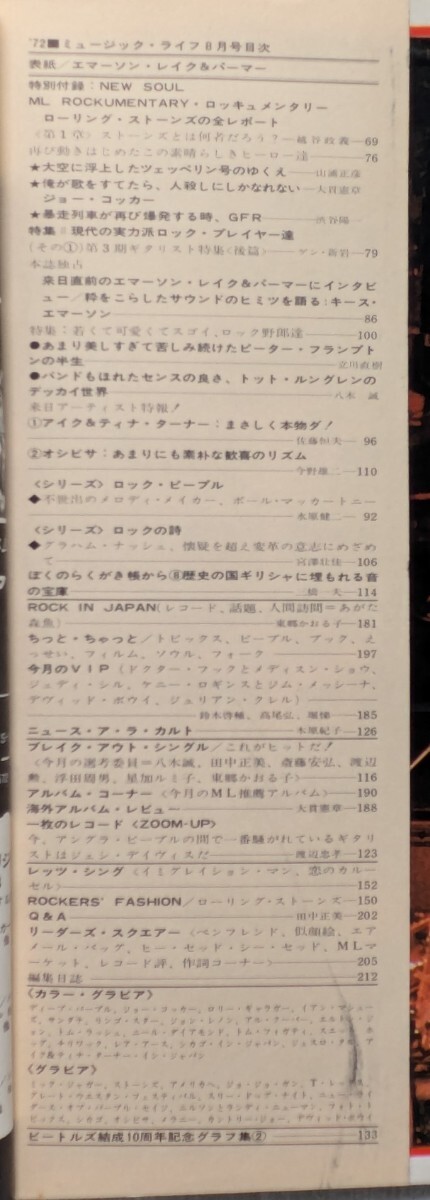 '72■ミュージック・ライフ8月号目次
表紙/エマーソン・レイク&パーマー
特別付録:NEW SOUL
ML ROCKUMENTARY・ロッキュメンタリー
ローリング・ストーンズの全レポート
《第1章》ストーンズとは何者だろう?―越谷政義―69
再び動きはじめたこの素晴らしきヒーロー達―76
★大空に浮上したツェッペリン号のゆくえ―山浦正彦
★俺が歌をすてたら、人殺しにしかなれない―大貫憲章
ジョー・コッカー
★暴走列車が再び爆発する時、GFR―渋谷陽一
特集 現代の実力派ロック・プレイヤー達
(その①)第3期ギタリスト特集〈後篇〉―ケン・新岩―79
本誌独占
来日直前のエマーソン・レイク&パーマーにインタビ
ュー/粋をこらしたサウンドのヒミツを語る:キース・
エマーソン―86
特集:若くて可愛くてスゴイ、ロック野郎達―100
●あまり美しすぎて苦しみ続けたピーター・フランプト
ンの半生―立川直樹
●バンドもほれたセンスの良さ、トット・ルングレンの
デッカイ世界―八木 誠
来日アーティスト特報!
①アイク&ティナ・ターナー:まさしく本物ダ!
―佐藤恒夫―96
②オシビサ:あまりにも素朴な歓喜のリズム
―今野雄二―110
〈シリーズ〉ロック・ピープル
◆不世出のメロディ・メイカー、ポール・マッカートニー
―水原健二―92
〈シリーズ〉ロックの詩
◆グラハム・ナッシュ、懐疑を超え変革の意志にめざめ
て―宮澤壮佳―106
ぼくのらくがき帳から⑧歴史の国ギリシャに埋もれる音
の宝庫―三橋一夫―114
ROCK IN JAPAN(レコード、話題、人間訪問=あがた
森魚)―東郷かおる子―181
ちっと・ちゃっと/トピックス、ピープル、ブック、え
っせい、フィルム、ソウル、フォーク―197
今月のVIP(ドクター・フックとメディスン・ショウ、
ジュディ・シル、ケニー・ロギンスとジム・メッシーナ、
デヴィッド・ボウイ、ジェリアン・クレル)―
―鈴木啓輔、高尾弘、堀悌―185
ニュース・ア・ラ・カルト―木原紀子―126
ブレイク・アウト・シングル/これがヒットだ!
《今月の選考委員=八木誠、田中正美、斎藤安弘、渡辺
勲、浮田周男、星加ルミ子、東郷かおる子》―116
アルバム・コーナー《今月のML推薦アルバム》―190
海外アルバム・レビュー―大貫憲章―188
一枚のレコード〈ZOOM-UP〉
今、アングラ・ピープルの間で一番騒がれているギタリ
ストはジェシ・デイヴィスだ―渡辺忠孝―123
レッツ・シング《イミグレイション・マン、恋のカルー
セル》―152
ROCKERS' FASHION/ローリング・ストーンズ―150
Q&A―田中正美―202
リーダーズ・スクエアー《ペンフレンド、似顔絵、エア
メール・バッグ、ヒー・セッド・シー・セッド、MLマ
ーケット、レコード評、作詞コーナー》―205
編集日誌―212
〈カラー・グラビア〉
ディープ・パープル、ジョー・コッカー、ロリー・ギャラガー、イアン・マシュー
ズ、サンタナ、リンゴ・スター、ジョン・レノン、アル・クーパー、エルトン・ジ
ョン、トム・ラッシュ、ニール・ダイアモンド、トム・フォガティ、
チリワック、レア・アース、シカゴ・イン・ジャパン、ジェスロ・タル、ア
イク&ティナ・ターナー・イン・ジャパン
〈グラビア〉
ミック・ジャガー、ストーンズ、アメリカへ、ジョ・ジョ・ガン、T・レックス、
グレート・ウエスタン・フェスティバル、スリー・ドッグ・ナイト、ニュー・ライ
ダース・オブ・パープル・セイジ、ニルソンとランディ・ニューマン、フォト・ト
ピックス、シカゴ、オシビサ、メラニー、カントリー・ジョー、デヴィッド・ボウイ
ビートルズ結成10周年記念グラフ集②―133